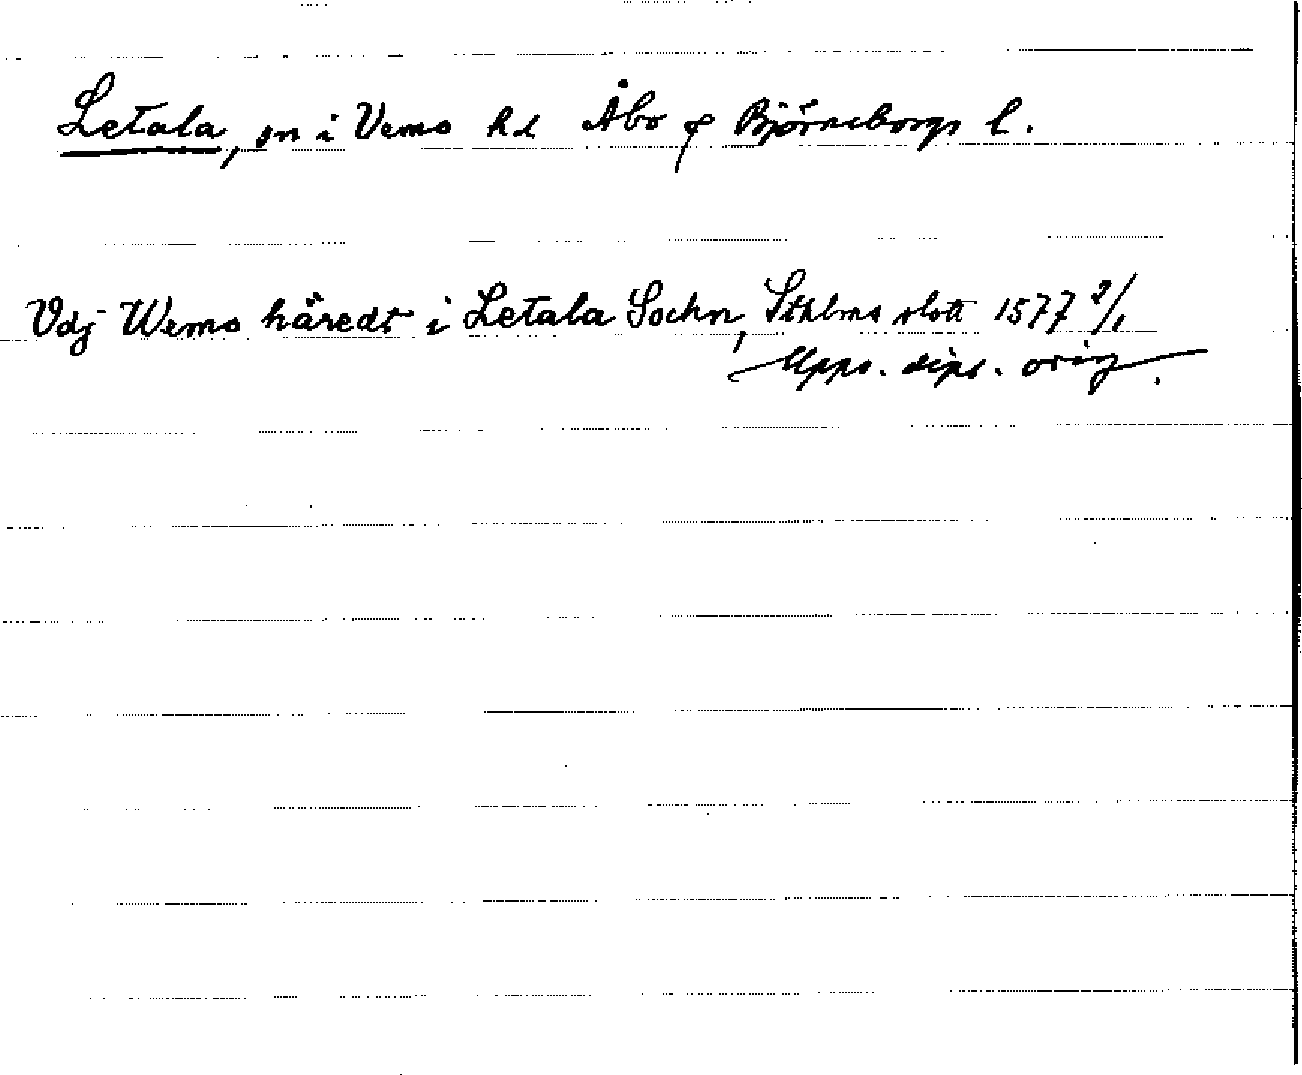 Letala, sn i Vemo hd Åbo & Björneborgs l.
Vdj Wemo häredt i Letala Sochn, Sthlms slott 1577 2/1
Upps. dipl. orig.